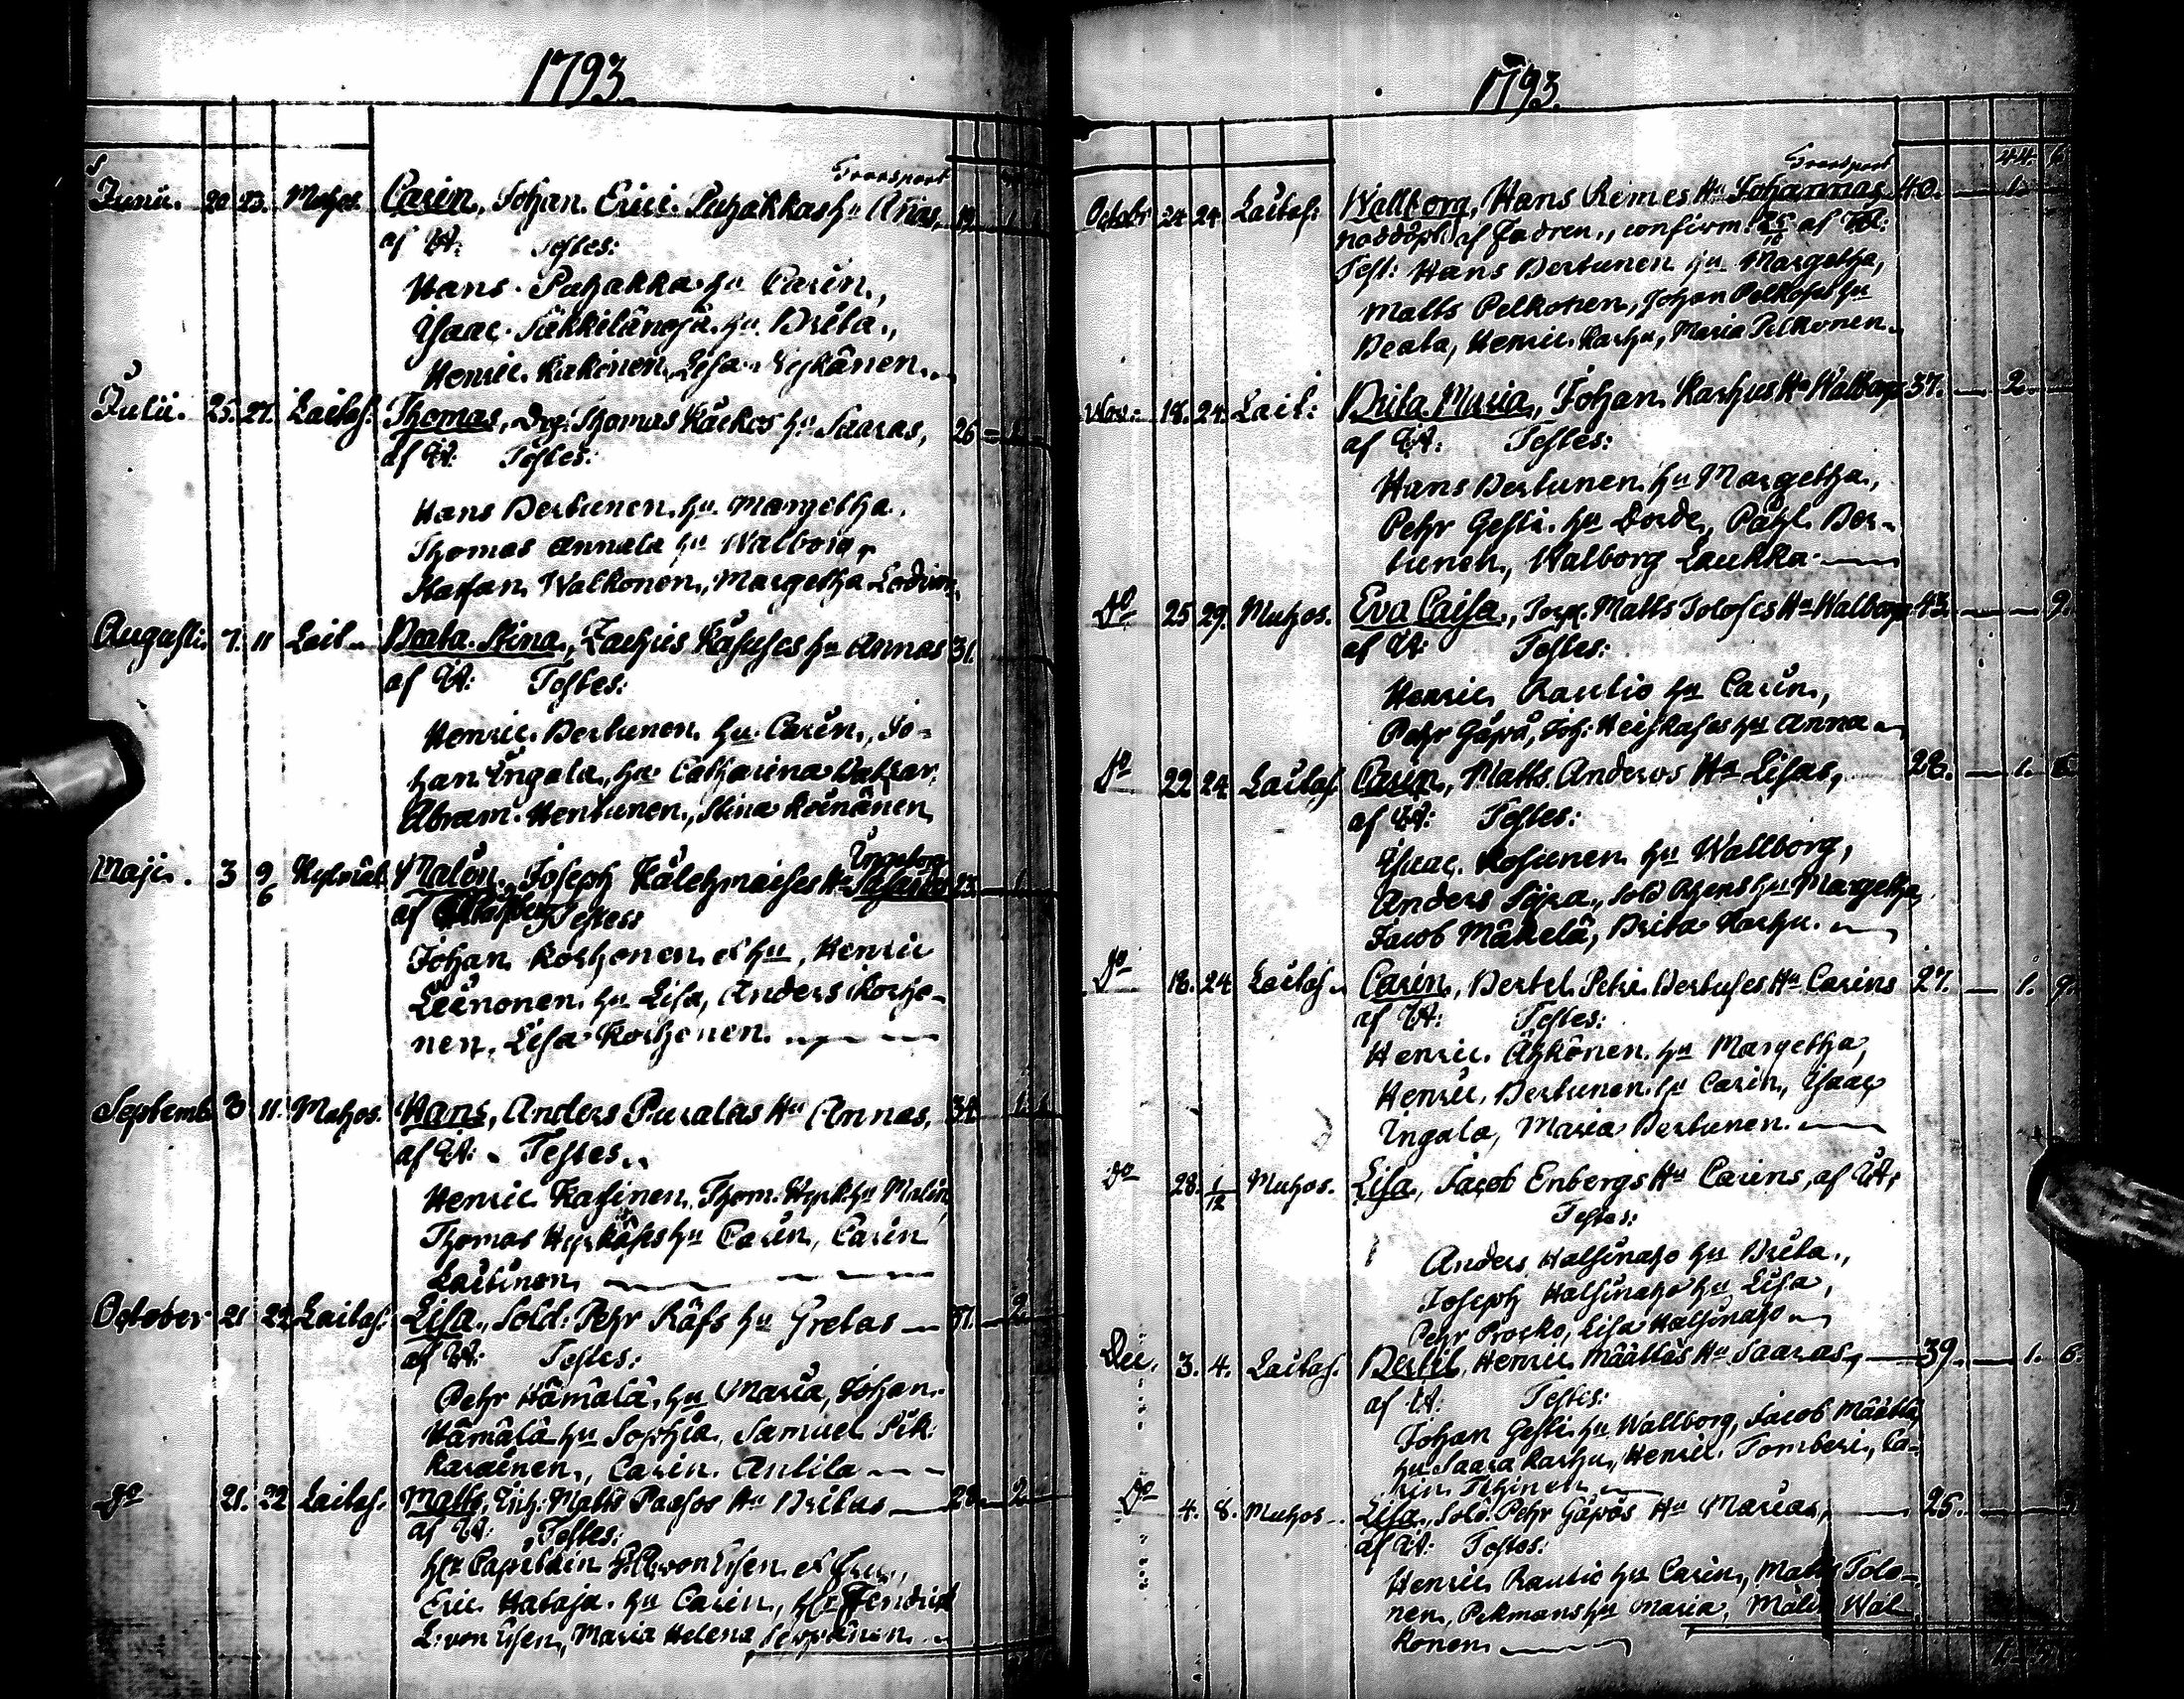 1793.
Transport
Junii. 20. 23. Muhos. Carin, Johan Erici Pahakkas hu Annas, 19.
af Testes:
Hans Pahakka hu Carin,
Isaac hu Brita,
Henric Kukonen, Lisa
Julii. 25. 27. Laitas: Thomas, Drg: Thomas hu Saaras, 26
af Testes:
Hans Bertunen hu Margetha.
Thomas Annala hu Walborg,
Walkonen, Margetha
Augusti. 7. 11 Lait Beata Stina, Zachris hu Annas 31.
af Testes:
Henric Bertunen hu Carin, Jo-
han Ingala, hu Catharina
Abram Hentunen, Stina Leinänen
Maji. 3 9/6 Malin, Joseph Hu Ingeborg 23. 1
af Testes
Johan Korhonen et hu, Henric
Leinonen hu Lisa, Anders Korho-
nen, Lisa Korhonen.
Septemb. 3 11. Muhos. Hans, Anders Puralas Hu Annas, 34. 1
af Testes.
Henric Kasinen, Thom. hu Malin
Thomas hu Carin, Carin
Laitinen
October 21 22 Laitas: Lisa, Sold: Pehr Räfs hu Gretas 37. 2
af Testes:
Pehr Hämälä, hu Maria, Johan
Hämälä hu Sophia, Samuel Pik-
karainen, Carin Antila
Do 21. 22 Laitas. Matts, Matts Paasos Hu Britas 28. 2
af Testes:
Hr Capitain von Essen et fru,
Eric Hataja hu Carin, Hr Fendrick
von Essen, Maria Helena Seppänen.
1793.
Transport
Octobr 24 24 Laitas: Wallborg, Hans Remes Hu Johannas 40. 1.
nöddöpt af Fadren, confirm: af
Test: Hans Bertunen hu Margetha,
Matts Pelkonen, Johan Pelkoses hu
Beata, Henric Karhu, Maria Pelkonen.
Nov: 18. 24. Lait: Brita Maria, Johan Karhus Hu Walborgs 37. 2.
af Testes:
Hans Bertunen hu Margetha,
Pehr Gesti hu Ber-
tunen, Walborg Laukka
Do 25 29. Muhos. Eva Caisa, Matts Toloses Hu Walborgs 43. 9.
af Testes:
Henric Rautio hu Carin,
Pehr Gäpå, Joh: Heiskases hu Anna
Do 22 24 Laitas. Carin, Matts Anderos Hu Lisas, 28. 1. 6.
af Testes:
Isaac Kosunen hu Wallborg,
Anders hu Margetha,
Jacob Mäkelä, Brita Karhu.
Do 18. 24 Laitas. Carin, Bertel Petri Bertuses Hu Carins 27. 1. 9.
af Testes:
Henric Ahkonen hu Margetha,
Henric Bertunen hu Carin, Isaac
Ingala, Maria Bertunen.
Do 28. 1/12 Muhos. Lisa, Jacob Enbergs Hu Carins, af
Testes:
Anders Halsinaho hu Brita,
Joseph Halsinaho hu Lisa,
Pehr Procko, Lisa Halsinaho
Dec. 3. 4. Laitas. Bertil, Henric Määttäs Hu Saaras, 39. 1. 6.
af Testes:
Johan Gesti hu Wallborg, Jacob Määttä
hu Saara Karhu, Henric Tomberi, Ca-
rin Tihinen
Do 4. 8. Muhos. Lisa, Sold. Pehr Gäpås Hu Marias, 25.
af Testes:
Henric Rautio hu Carin, Matts Tolo-
nen, Pekmans hu Maria, Malin Wal-
konen